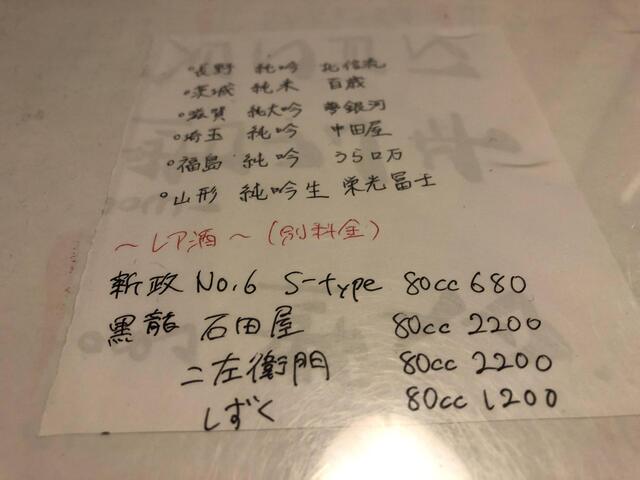 ○長野 純吟 北信流
○茨城 純米 百歳
○滋賀 純大吟 夢銀河
○埼玉 純吟 中田屋
○福島 純吟 うらロ万
○山形 純吟生 栄光冨士
〜レア酒〜(別料金)
新政 No.6 S-type 80cc 680
黒龍 石田屋 80cc 2200
二左衛門 80cc 2200
しずく 80cc 1200